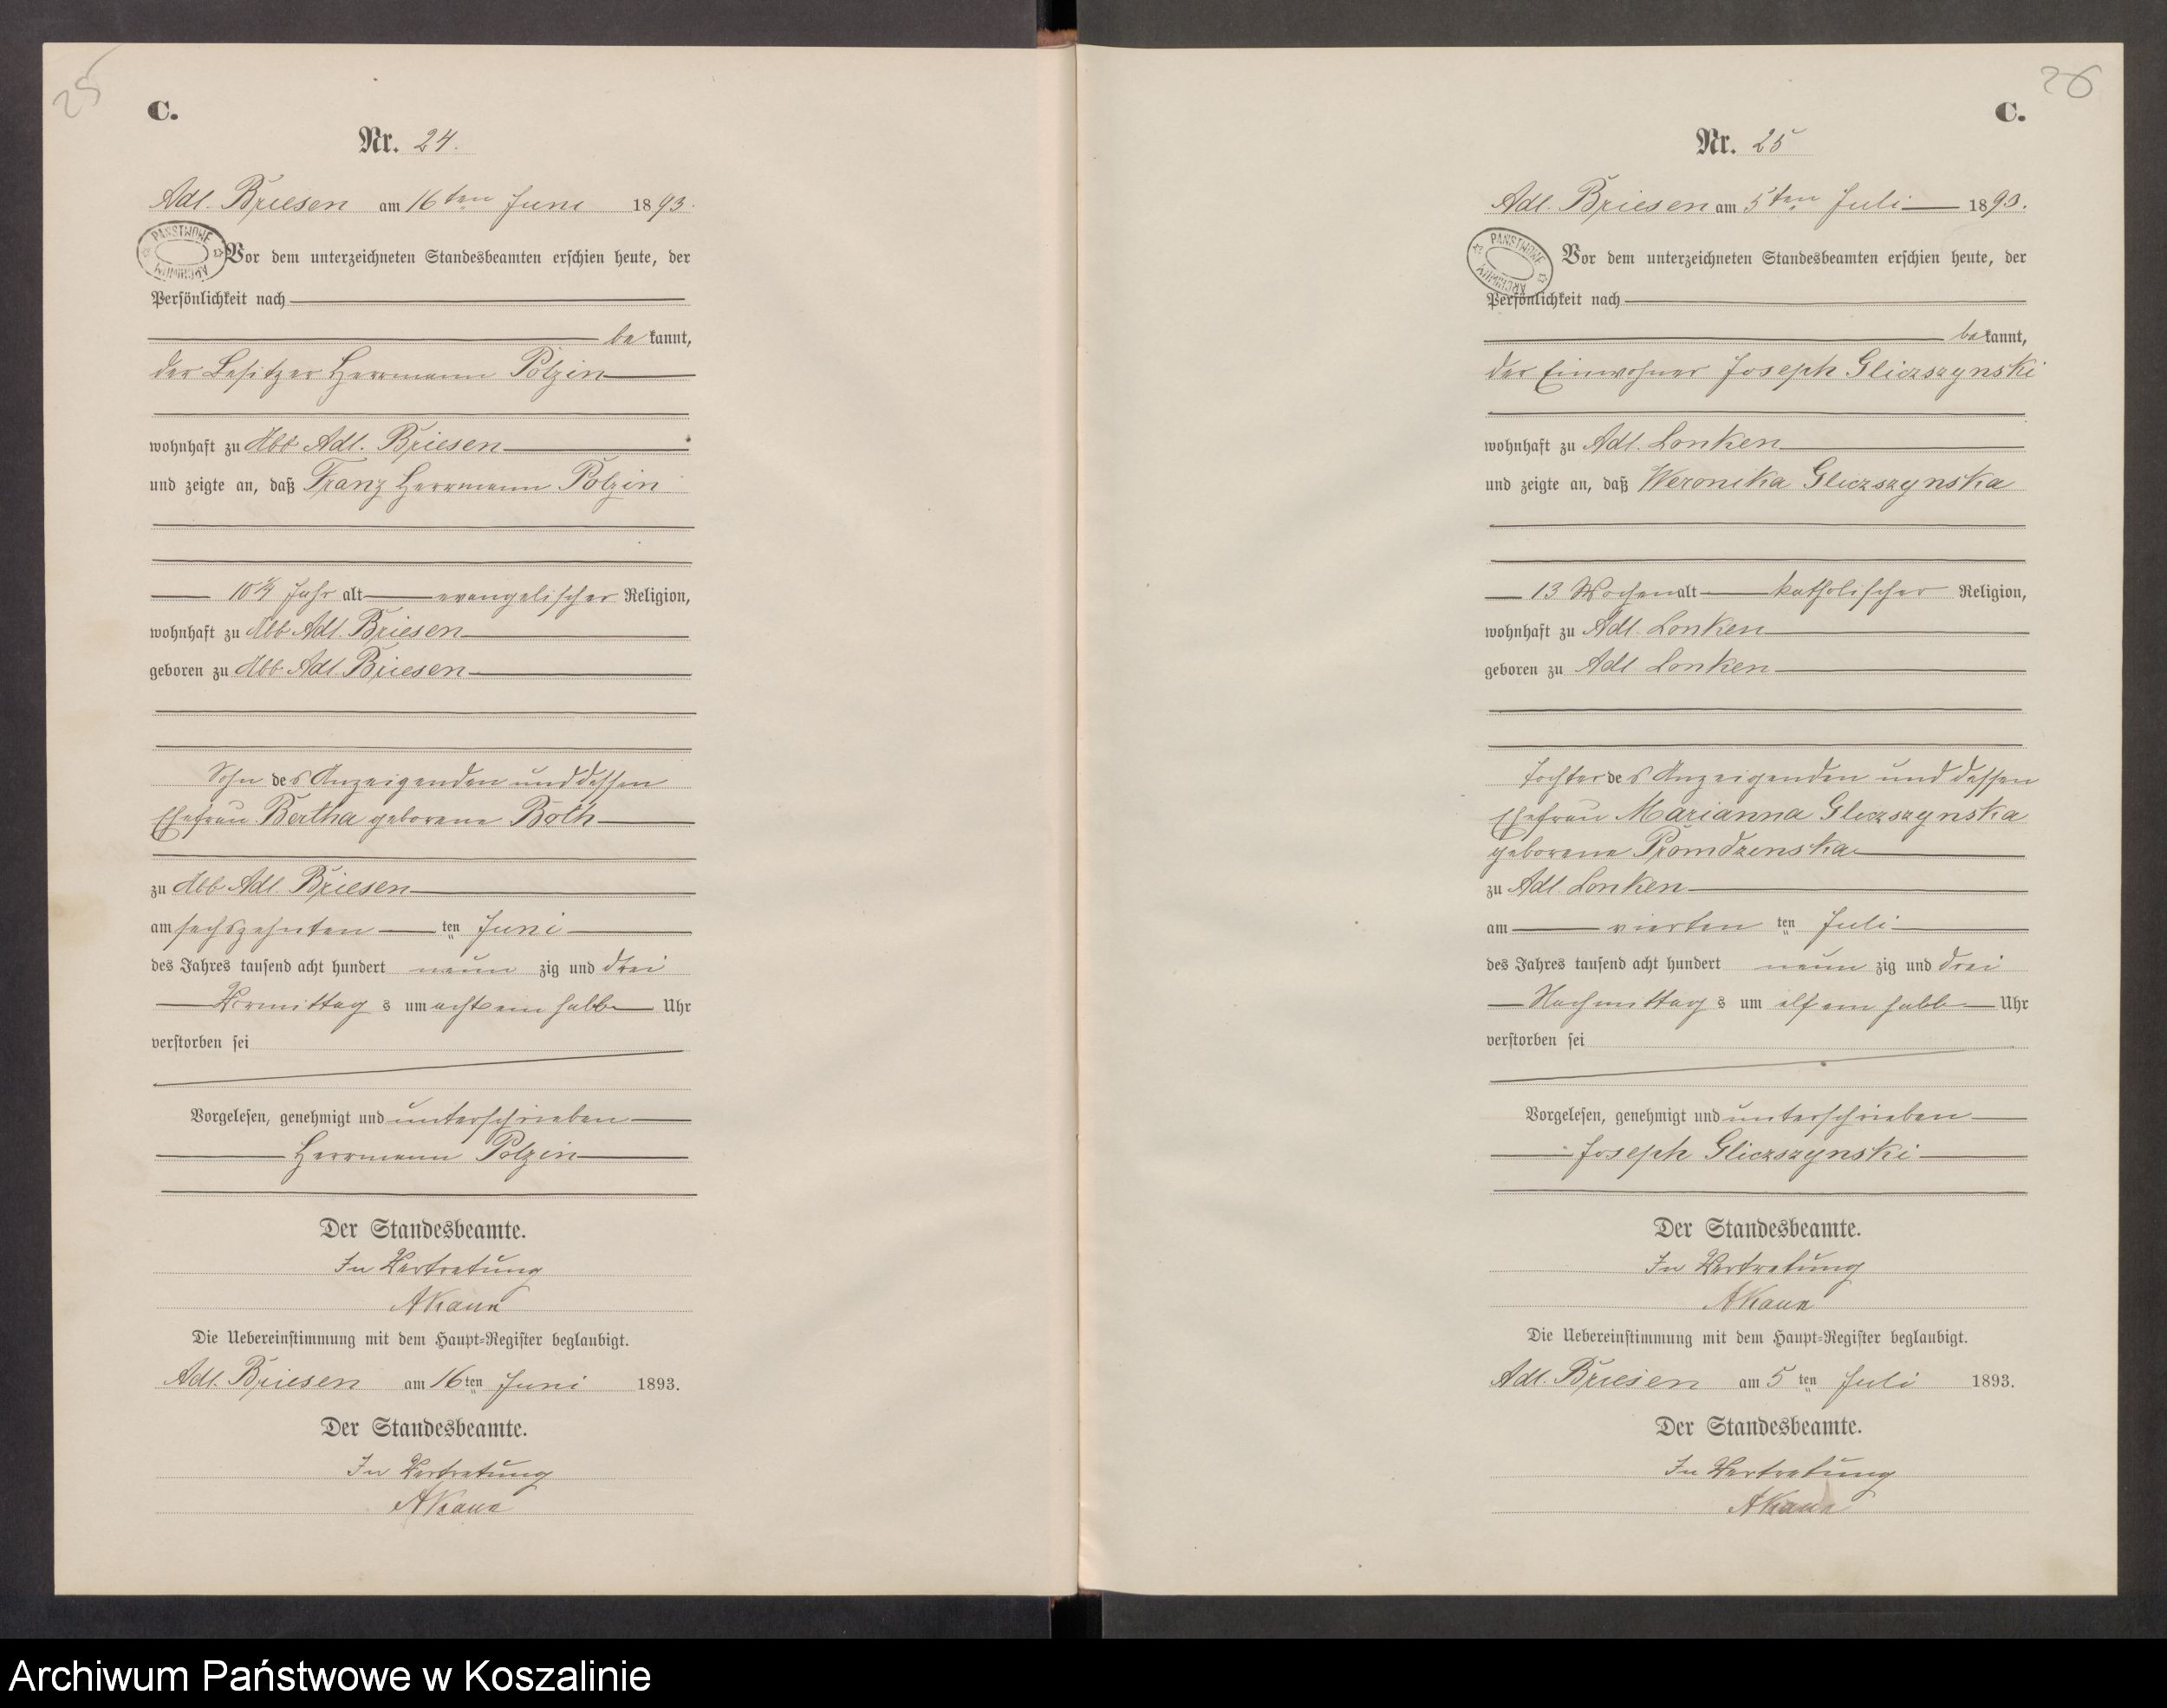 25
C.
Nr. 24.
Adl. Briesen am 16ten Juni 1893.
PAŃSTWOWE ARCHIWUM
Vor dem unterzeichneten Standesbeamten erschien heute, der
Persönlichkeit nach
bekannt,
der Besitzer Herrmann Polzin
wohnhaft zu Abb. Adl. Briesen
und zeigte an, daß Franz Herrmann Polzin
10¼ Jahr alt evangelischer Religion,
wohnhaft zu Abb Adl. Briesen
geboren zu Abb. Adl. Briesen
Sohn des Anzeigenden und dessen
Ehefrau Bertha geborene Both
zu Abb Adl. Briesen
am sechszehnten ten Juni
des Jahres tausend acht hundert neunzig und drei
Vormittags um acht ein halb Uhr
verstorben sei
Vorgelesen, genehmigt und unterschrieben
Herrmann Polzin
Der Standesbeamte.
In Vertretung
Die Uebereinstimmung mit dem Haupt-Register beglaubigt.
Adl. Briesen am 16ten Juni 1893.
Der Standesbeamte.
In Vertretung
26
C.
Nr. 25
Adl. Briesen am 5ten Juli 1893.
PAŃSTWOWE ARCHIWUM
Vor dem unterzeichneten Standesbeamten erschien heute, der
Persönlichkeit nach
bekannt,
der Einwohner Joseph Gliczszynski
wohnhaft zu Adl. Lonken
und zeigte an, daß Weronika Gliczszynska
13 Wochen alt katholischer Religion,
wohnhaft zu Adl. Lonken
geboren zu Adl Lonken
Tochter des Anzeigenden und dessen
Ehefrau Marianna Gliczszynska
geborene
zu Adl. Lonken
am vierten ten Juli
des Jahres tausend acht hundert neunzig und drei
Nachmittags um elf ein halb Uhr
verstorben sei
Vorgelesen, genehmigt und unterschrieben
Joseph Gliczszynski
Der Standesbeamte.
In Vertretung
Die Uebereinstimmung mit dem Haupt-Register beglaubigt.
Adl. Briesen am 5ten Juli 1893.
Der Standesbeamte.
In Vertretung
Archiwum Państwowe w Koszalinie